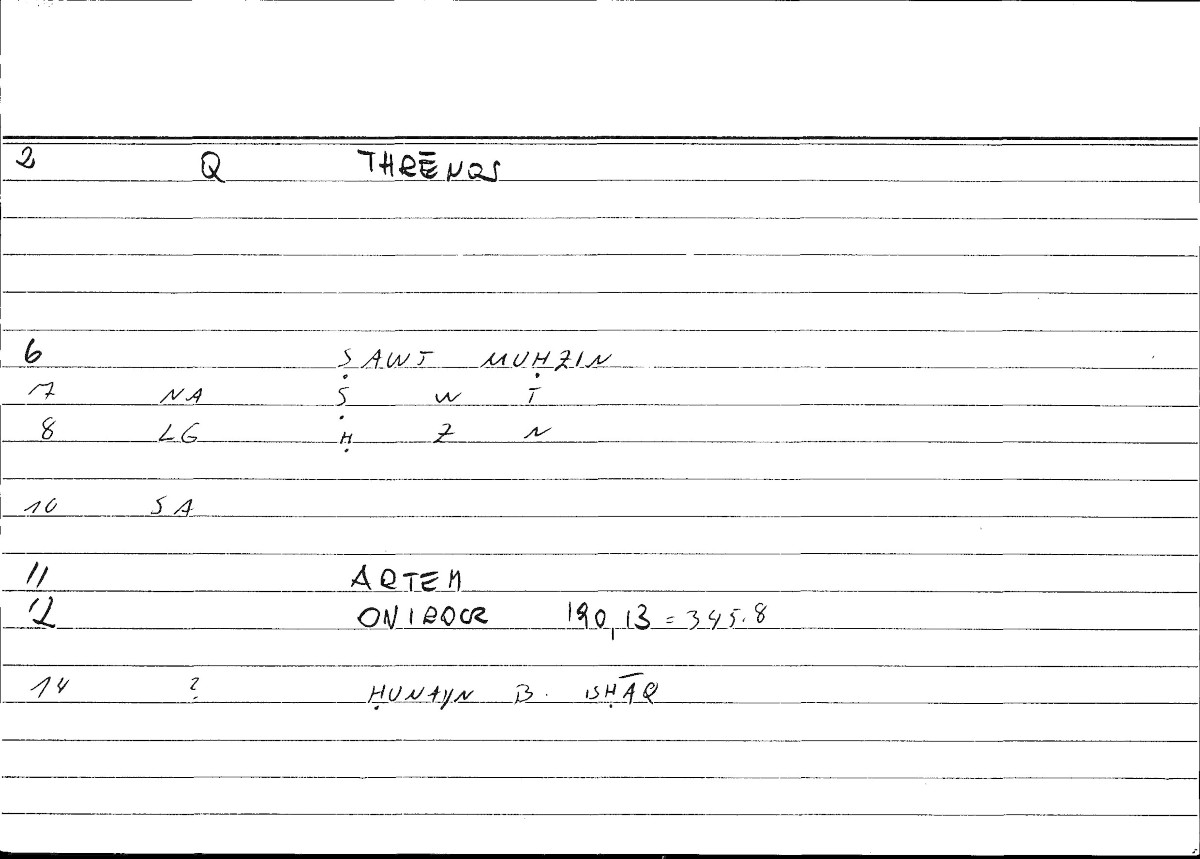 2 Q THRĒNOS
6 ṢAWT MUḤZIN
7 NA Ṣ W T
8 LG Ḥ Z N
10 SA
11 ARTEM
12 ONIROCR 190,13 = 345.8
14 ? ḤUNAYN B. ISḤĀQ